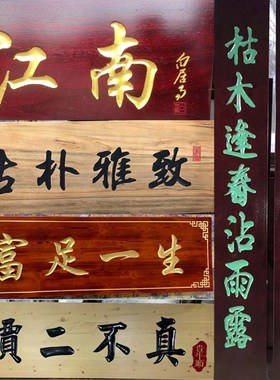 江南
白居易
古朴雅致
富足一生
真不二價
枯木逢春沾雨露